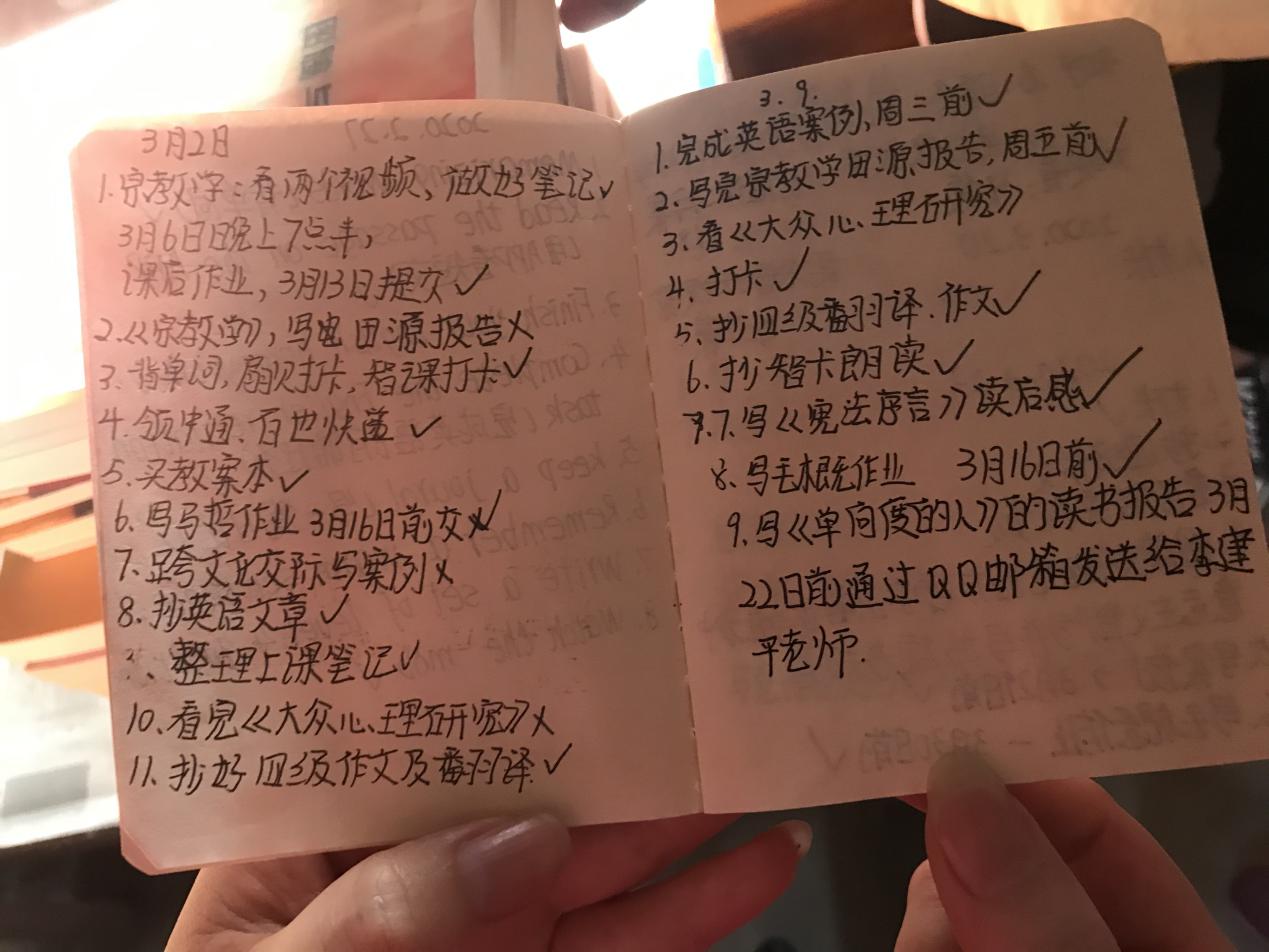 3月2日
1.宗教学:看两个视频,做好笔记✓
3月6日晚上7点半,
课后作业,3月13日提交✓
2.《宗教学》,写 田源报告✗
3.背单词,扇贝打卡,智课打卡✓
4.领中通.百世快递 ✓
5.买教案本✓
6.写马哲作业 3月16日前交
7.跨文化交际写案例✗
8.抄英语文章 ✓
9、整理上课笔记✓
10.看完《大众心理研究》✗
11.抄好四级作文及翻译✓
3.9.
1.完成英语案例,周三前✓
2.写完宗教学田源报告,周五前✓
3.看《大众心理研究》
4.打卡✓
5.抄四级翻译.作文✓
6.抄智卡朗读✓
7.写《宪法序言》读后感✓
8.写毛概作业 3月16日前✓
9.写《单向度的人》的读书报告3月
22日前通过QQ邮箱发送给李建
平老师.